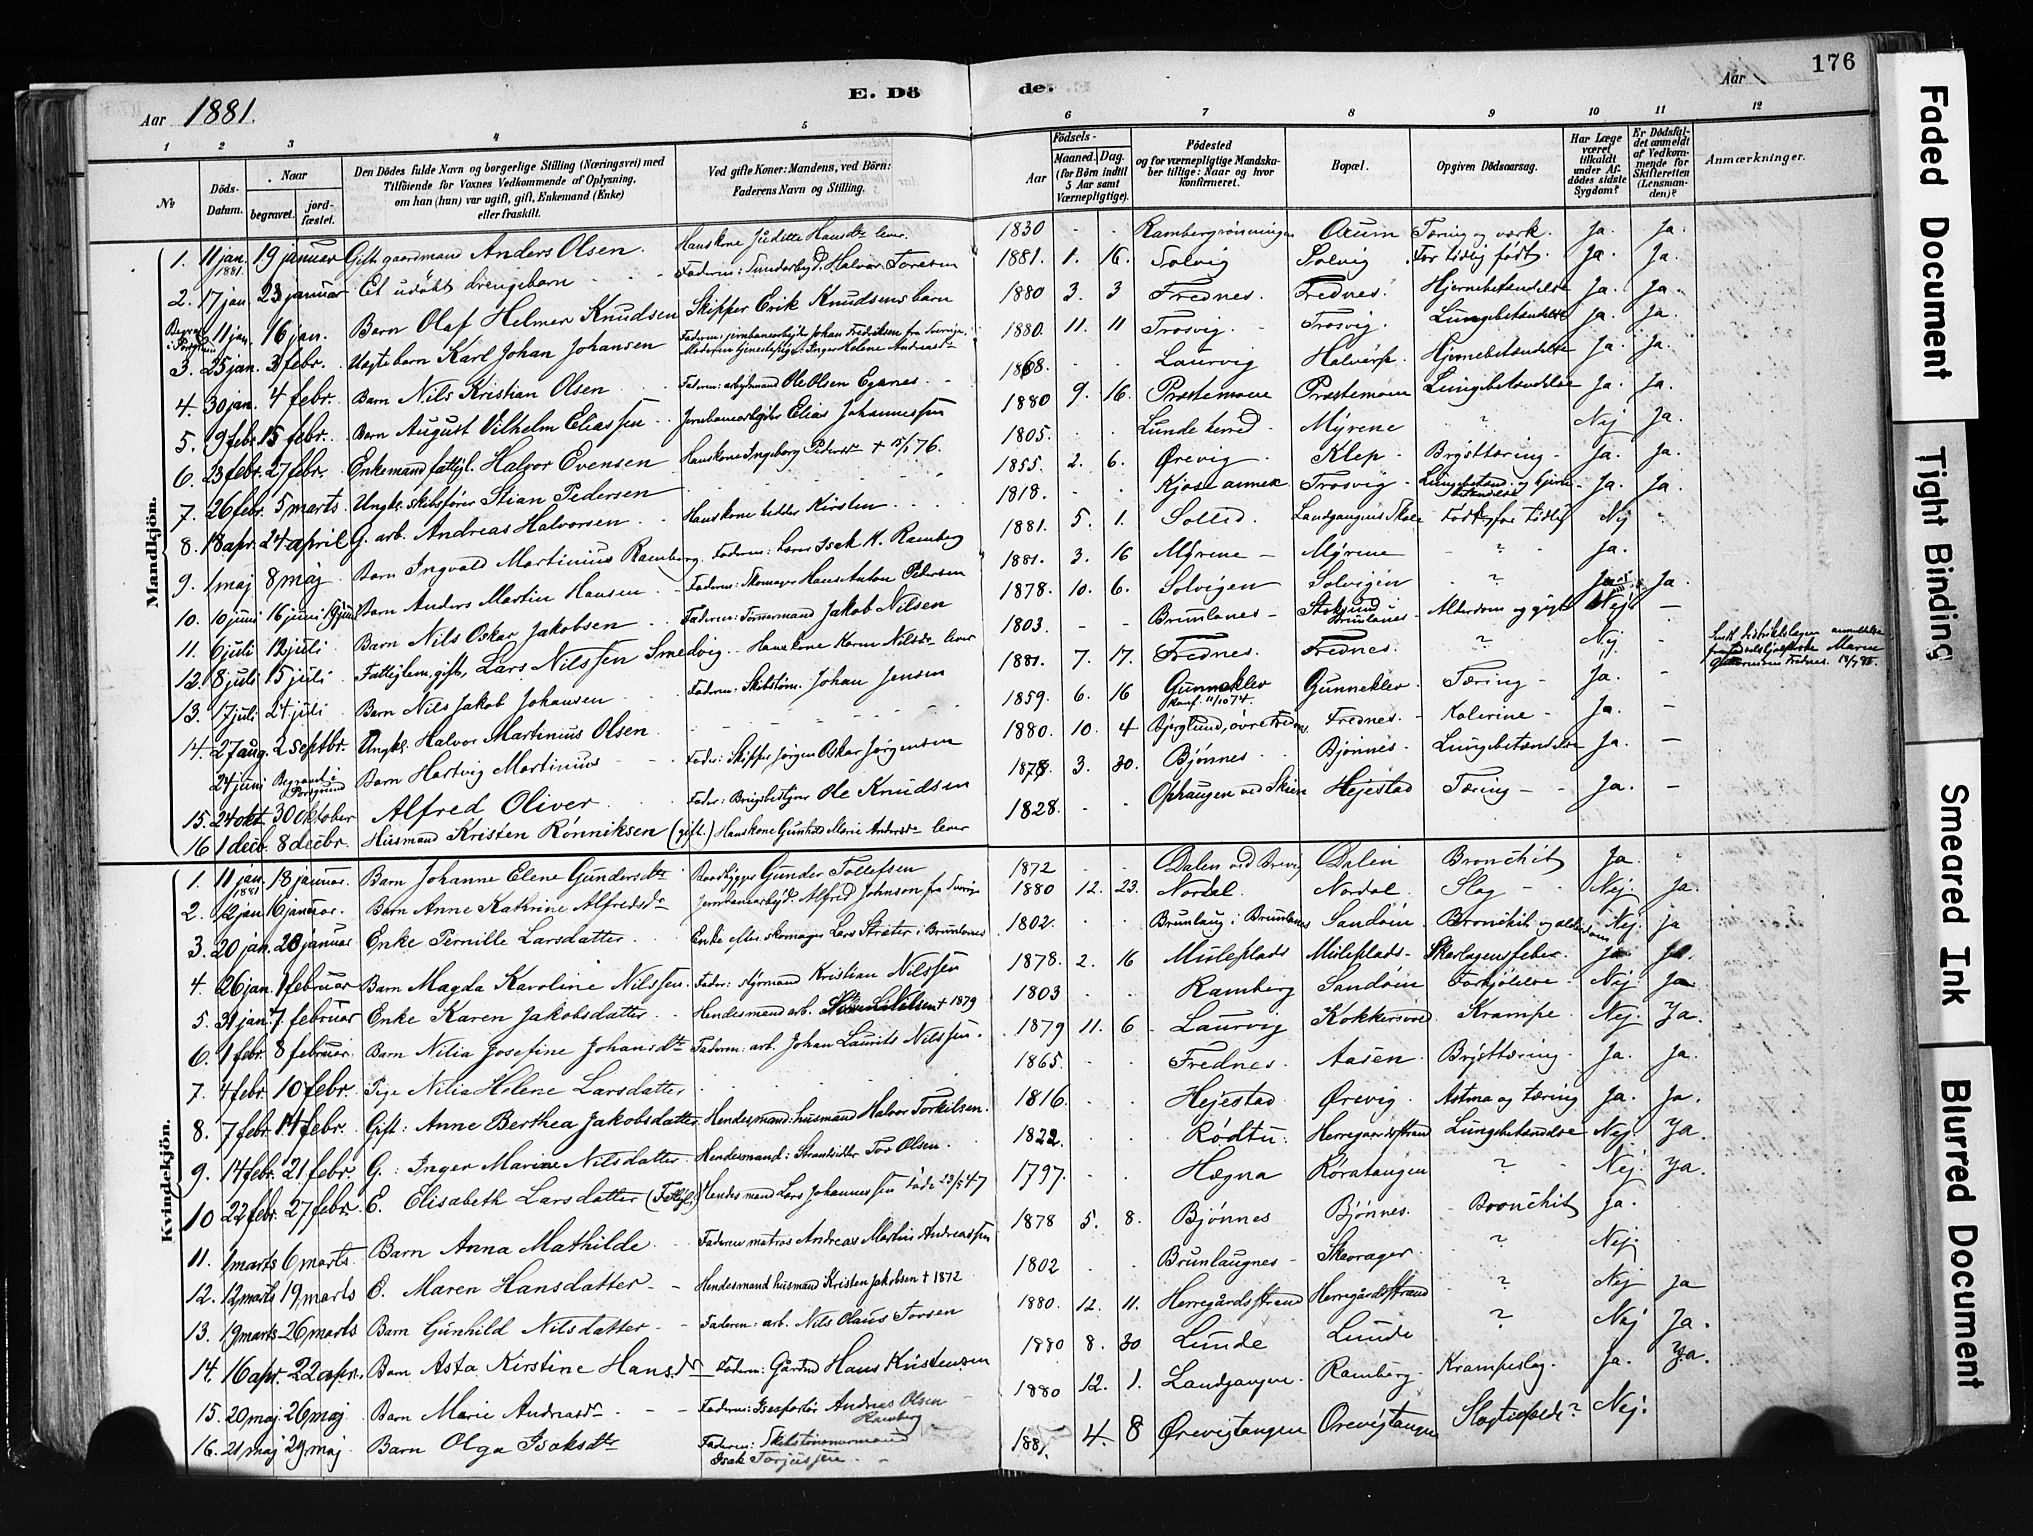 176
Aar 1881.
E. Dö
de.
Aar
1 2 3 4 5 6 7 8 9 10 11 12
№
Döds-Datum.
Naar
begravet.
jord-fæstet.
Den Dödes fulde Navn og borgerlige Stilling (Næringsvei) med
Tilföiende for Voxnes Vedkommende af Oplysning,
om han (hun) var ugift, gift, Enkemand (Enke)
eller fraskilt.
Ved gifte Koner: Mandens, ved Börn:
Faderens Navn og Stilling.
Födsels-
Aar
Maaned.
Dag.
(for Börn indtil
5 Aar samt
Værnepligtige).
Födested
og for værnepligtige Mandska-
ber tillige: Naar og hvor
konfirmeret.
Bopæl.
Opgiven Dödsaarsag.
Har Læge
været
tilkaldt
under Af-
dödes sidste
Sygdom?
Er Dödsfal-
det anmeldt
af Vedkom-
mende for
Skifteretten
(Lensman-
den)?
Anmærkninger.
Mandkjön.
1. 11 jan. 1881. 19 januar Gift gaardmand Anders Olsen. Hans kone Juditte Hansdtr lever. 1830 Rambergrönningen Ørum Tæring og værk. Ja. Ja.
2. 17 jan. 23 januar Et udöbt drengebarn Faderen: Halvor Toresen 1881. 1. 16. Solvig Solvig For tidlig födt. Ja. Ja.
11 jan. 16 jan. Barn Olaf Helmer Knudsen Skipper Erik Knudsens barn 1880 3. 3 Frednes. Frednes. Hjernebetændelse Ja. Ja.
3. 25 jan. 3 febr. Uægte barn Karl Johan Johansen Faderen: jernbanearbejder Johan Fredriksen fra Sverige. Moderen tjenestepige: Inger Helene Andreasdtr 1880. 11. 11 Trosvig. Trosvig. Lungebetændelse Ja. Ja.
4. 30 jan. 4 febr. Barn Nils Kristian Olsen Faderen: arbejdsmand Ole Olsen Eganes 1868. Laurvig Halvarp. Hjernebetændelse Ja. Ja.
5. 9 febr. 15 febr. Barn August Vilhelm Eliassen Jernbanearbejder Elias Johannessen 1880 9. 16. Præstemoen Præstemoen Lungebetændelse Ja. Ja.
6. 23 febr. 27 febr. Enkemand fattigl. Halvor Evensen Hans kone Ingeborg Pedersdtr 1805. Lunde herred Myrene ? Nej Ja.
7. 26 febr. 5 marts. Ungk. skibsförer Stian Pedersen 1855. 2. 6. Ørevig Klep Brysttæring Ja. Ja.
8. 18 apr. 24 april G. arb. Andreas Halvorsen Hans kone hedder Kirsten 1818. Kjose annex Trosvig Ja. Ja.
9. 1 maj 8 maj Barn Ingvald Martinius Ramberg. Faderen: Lærer Isak K. Ramberg 1881. 5. 1. Landgangens Skole Födt for tidlig Nej
10. 10 juni 16 juni 19 juni Barn Anders Martin Hansen Faderen: Skomager Hans Anton Petersen 1881. 3. 16 Myrene Myrene ? Ja.
11. 6 juli 12 juli Barn Nils Oskar Jakobsen Faderen: Tömmermand Jakob Nilsen 1878. 10. 6. Solvigen Solvigen ? Ja. Ja.
12. 8 juli 15 juli Fattiglem, gift, Lars Nilssen Smedvig. Hans kone Karen Nilsdtr lever 1803. Brunlanes Stoksund i Brunlanes Alderdom og gigt Nej. —
13. 17 juli 24 juli Barn Nils Jakob Johansen Faderen: Skibstöm. Johan Jensen 1881. 7. 17. Frednes Frednes. ? Nej —
14. 27 aug. 2 septbr. Ungkl. Halvor Martinius Olsen 1859. 6. 16 Gunneklev Konf. 11/10 74. Gunneklev Tæring Ja. —
24 juni Begravet i Porsgrund Barn Hartvig Martinius Fader: Skipper Jörgen Oskar Jörgensen 1880. 10. 4 Bjerglund, övre Frednes. Frednes. Kolerine Ja. —
15. 24 okt. 30 oktober Alfred Oliver Fader: Brugsbestyrer Ole Knudsen 1878. 3. 30. Bjönnes Bjönnes. Lungebetændelse Ja. —
16 1 decb. 8 decbr. Husmand Kristen Rönniksen (gift.) Hans kone Gunhild Marie Andersdtr lever 1828. Ophaugen ved Skien Hejestad Tæring Ja. —
Kvindekjön.
1. 11 jan. 1881 18 januar. Barn Johanne Elene Gundersdtr Gunder Tollefsen 1872 Dalen ved Brevig Dalen Bronchit Ja.
2. 12 jan. 16 januar. Barn Anne Kathrine Alfredsdtr Jernbanearbejd. Alfred Johnson fra Sverige 1880 12. 23. Nordal. Nordal. Slag Nej. Ja.
3. 20 jan. 28 januar Enke Pernille Larsdatter. Enke efter skomager Lars Stræter i Brunlanes 1802. Brunlaug i Brunlanes Sandöen Bronchit og alderdom Nej. Ja
4. 26 jan. 1 februar Barn Magda Karoline Nilssen. Fader: styrmand Kristian Nilssen 1878. 2. 16 Muleplads Muleplads Skarlagensfeber Ja. Ja.
5. 31 jan. 7 februar Enke Karen Jakobsdatter Hendes mand arb. + 1879 1803 Ramberg Sandöen Forkjölelse Nej Ja
6. 1 febr. 8 februar. Barn Nilia Josefine Johansdtr Faderen: arb. Johan Laurits Nilssen. 1879 11. 6 Laurvig Krampe. Nej. Ja.
7. 4 febr. 10 febr. Pige Nilia Helene Larsdatter 1865. Frednes. Aasen Brysttæring Ja. Ja.
8. 7 febr. 14 febr. Gift: Anne Berthea Jakobsdatter Hendes mand: husmand Halvor Torkilsen. 1816. Hejestad Ørevig. Astma og tæring Ja. Ja.
9. 14 febr. 21 febr. G: Inger Marine Nilsdatter. Hendes mand: Strandsidder Tor Olsen. 1822. Rödtu. Herregaardsstrand Lungebetændelse Nej. Ja.
10 22 febr. 27 febr. E. Elisabeth Larsdatter Hendes mand Lars Johannessen 1797. Hægna Röratangen ? Nej. Ja.
11. 1 marts 6 marts. Barn Anna Mathilde Faderen matros Andreas Martin Andreassen 1878 5. 8. Bjönnes Bjönnes. Bronchit Ja.
12. 12 marts 19 marts E. Maren Hansdatter Hendes mand husmand Kristen Jakobsen + 1872 1802 Brunlaugnes Skavrager. ? Nej.
13. 19 marts 26 marts Barn Gunhild Nilsdatter Faderen: arb. Nils Olaus Torsen 1880. 12. 11. Herregårdsstrand Herregårdsstrand ? Nej Ja
14. 16 apr. 22 apr. Barn Asta Kirstine Hansdtr Faderen: Gårdmd Hans Kristensen 1880 8. 30 Lunde Lunde ? Nej Ja.
15. 20 maj. 26 maj Barn Marie Andreasdtr Faderen: Andreas Olsen Ramberg 1880 12. 1. Landgangen. Ramberg. Krampeslag. Ja. Ja.
16. 21 maj 29 maj Barn Olga Isaksdtr Faderen: Skibstömmermand Isak Torjussen 1881. 4. 8 Ørevigtangen Orevigtangen ? Nej.
Faded Document
Tight Binding
Smeared Ink
Blurred Document